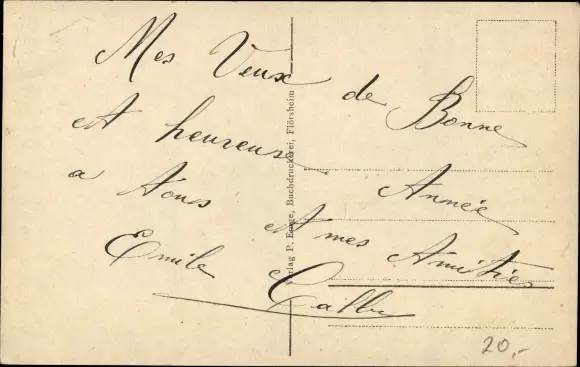 Mes Veux de Bonne
et heureuse Année
a Tous et mes Amitiés
Emile
Verlag P. Buchdruckerei, Flörsheim
20,-